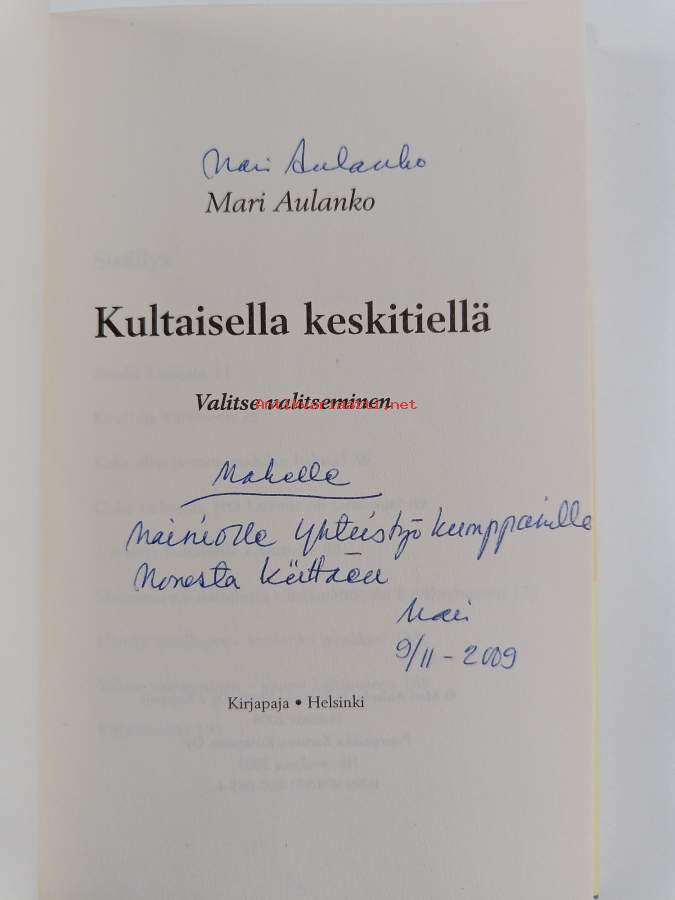 Mari Aulanko
Mari Aulanko
Kultaisella keskitiellä
Valitse valitseminen
Antikvariaatti.net
Makelle
Mainiolle yhteistyökumppanille
Monesta kiittäen
Mari
9/11-2009
Kirjapaja • Helsinki